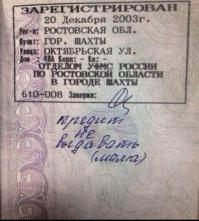 ЗАРЕГИСТРИРОВАН
20 Декабря 2003г.
Рег-н: РОСТОВСКАЯ ОБЛ.
Пункт: ГОР. ШАХТЫ
Улица: ОКТЯБРЬСКАЯ УЛ.
Дом : 48А Корп: - Кв: -
ОТДЕЛОМ УФМС РОССИИ
ПО РОСТОВСКОЙ ОБЛАСТИ
В ГОРОДЕ ШАХТЫ
610-008 Заверил:
кредит
не
выдавать